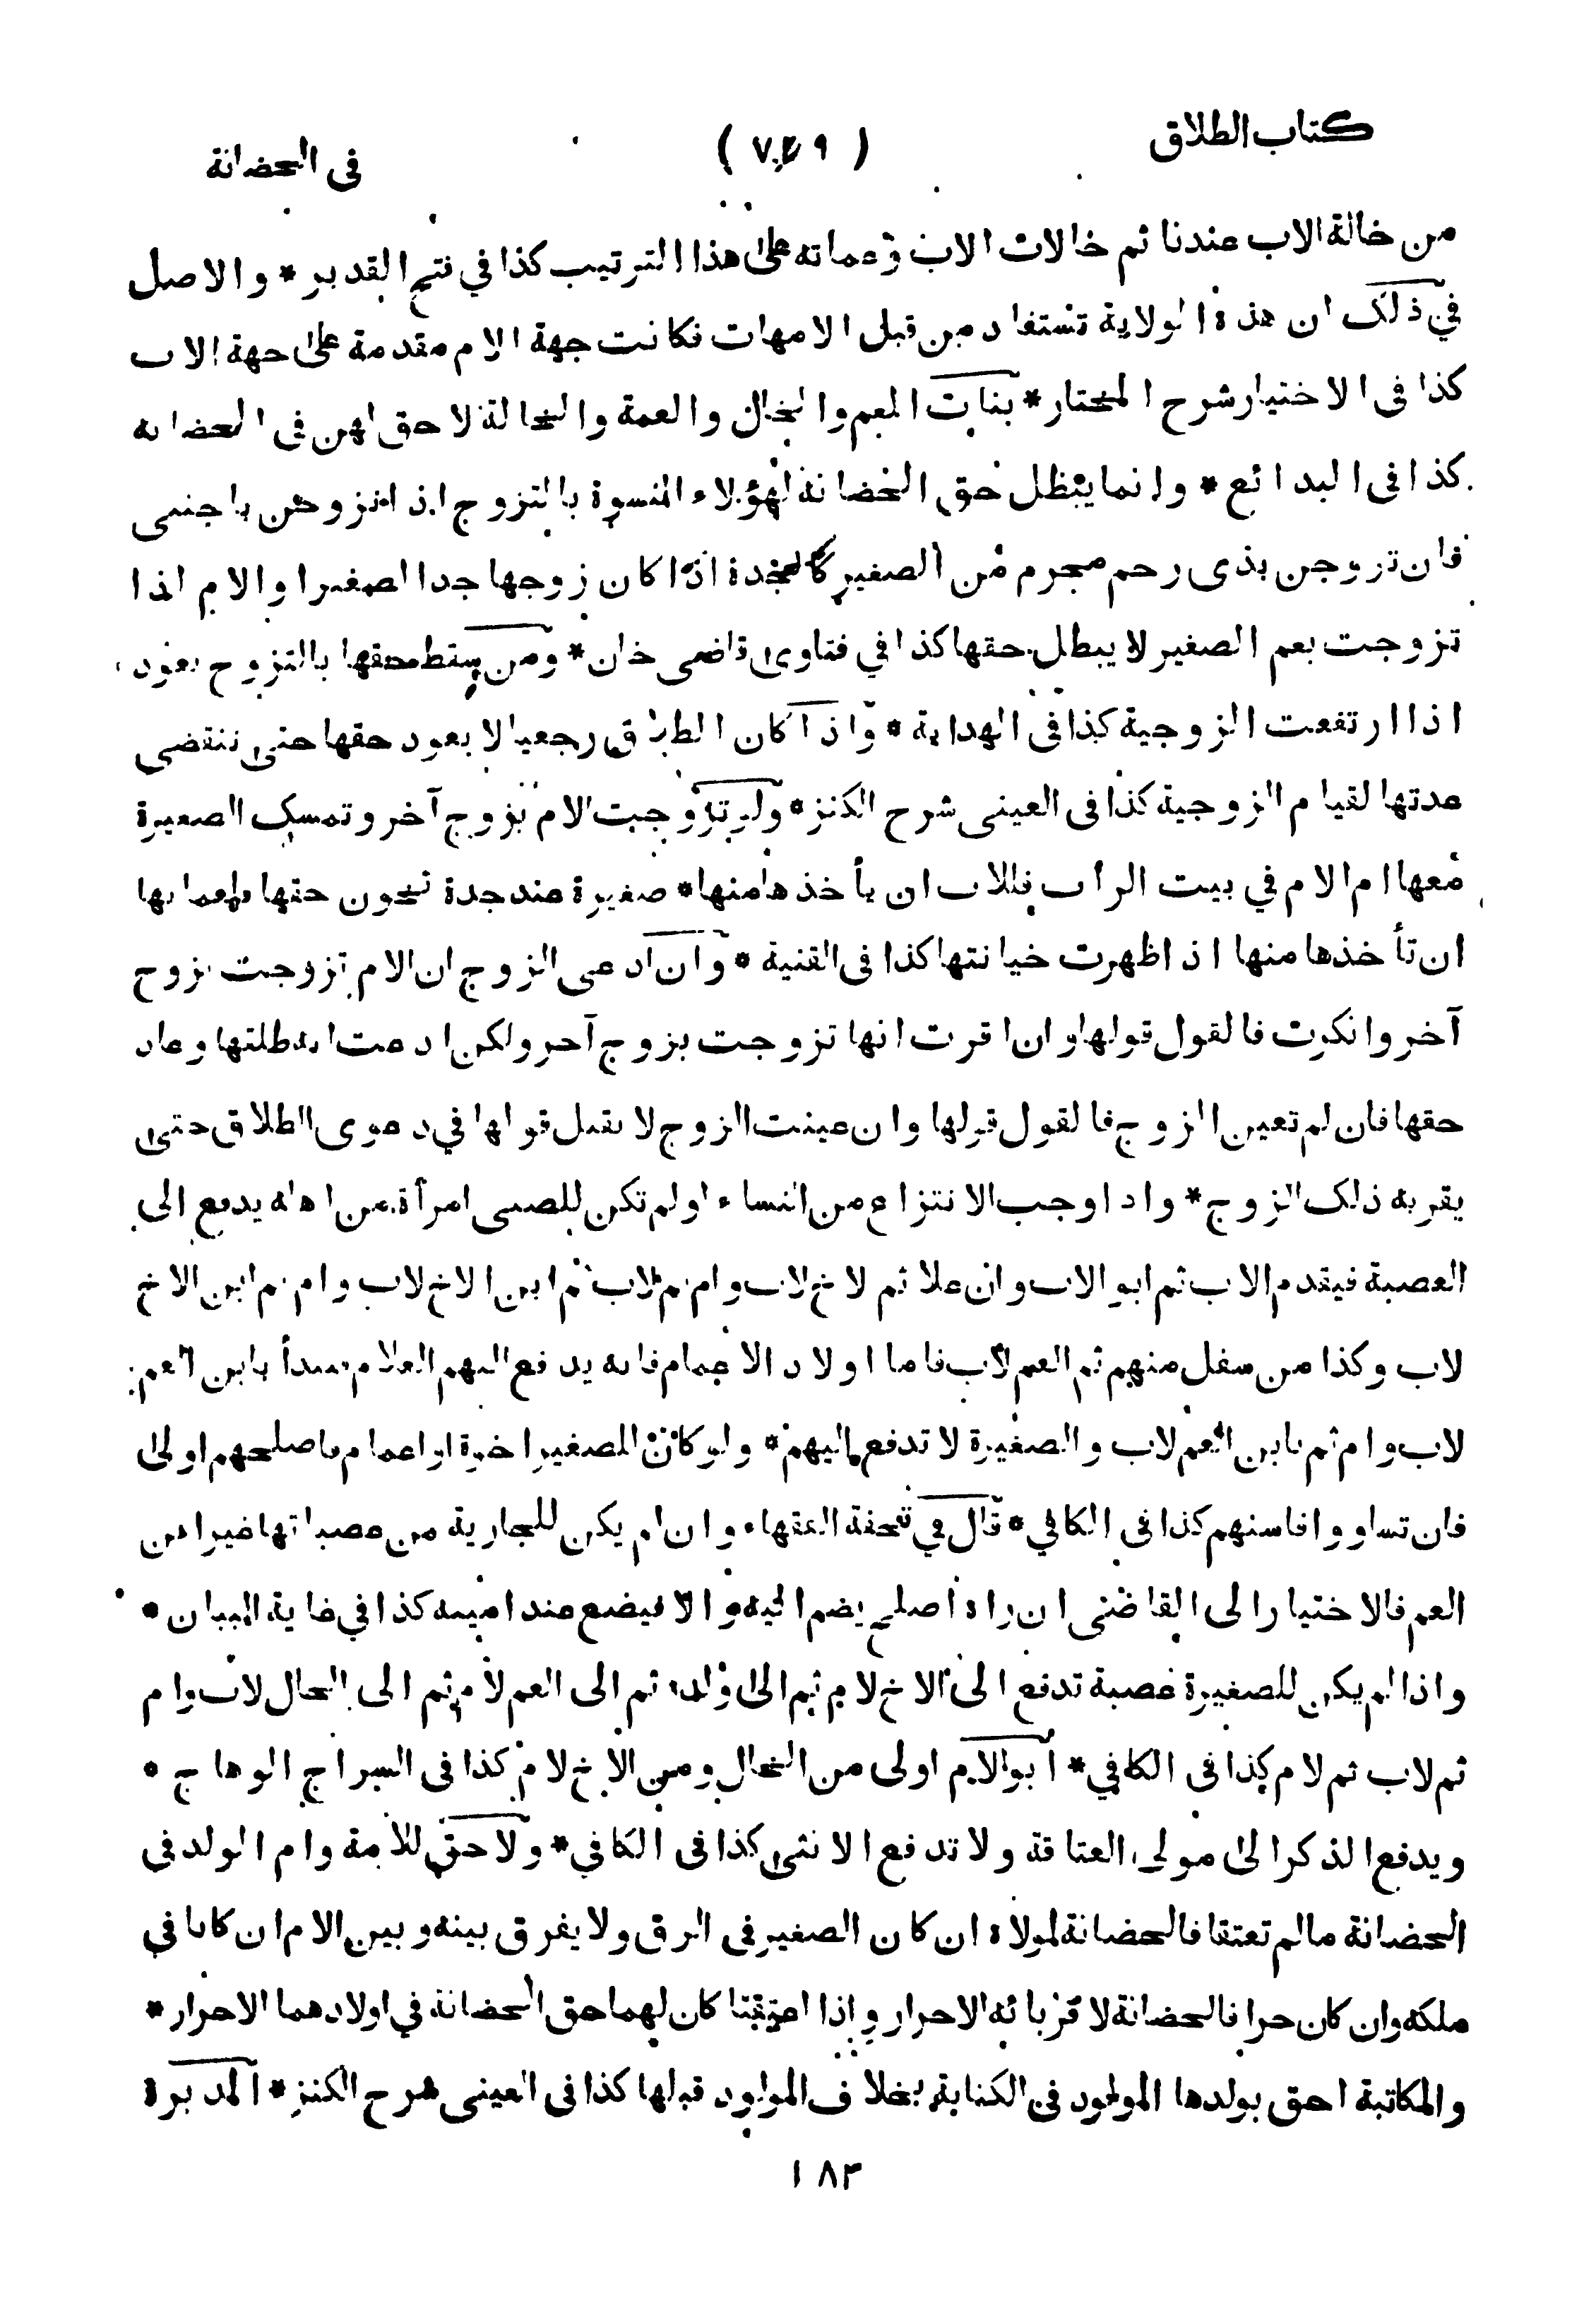 كتاب الطلاق
( ٧٢٩ )
فى الحضانة
من خالة الاب عندنا ثم خالات الاب وعماته على هذا الترتيب كذا في فتح القدير * والاصل
في ذلك ان هذه الولاية تستفاد من قبل الامهات فكانت جهة الام مقدمة على جهة الاب
كذا فى الاختيار شرح المختار * بنات العم والخال والعمة والخالة لا حق لهن فى الحضانة
كذا فى البدائع * وانما يبطل حق الحضانة لهؤلاء النسوة بالتزوج اذا تزوجن باجنبى
فان تزوجن بذى رحم محرم من الصغير كالجدة اذا كان زوجها جدا لصغير او الام اذا
تزوجت بعم الصغير لا يبطل حقها كذا في فتاوى قاضى خان * ومن سقط حقها بالتزوج يعود
اذا ارتفعت الزوجية كذا فى الهداية * واذا كان الطلاق رجعيا لا يعود حقها حتى تنقضى
عدتها لقيام الزوجية كذا فى العينى شرح الكنز * ولو تزوجت الام بزوج آخر وتمسك الصغيرة
معها ام الام في بيت الراب فللاب ان يأخذها منها * صغيرة عند جدة تخون حقها فلعمابها
ان تأخذها منها اذا ظهرت خيانتها كذا فى القنية * وان ادعى الزوج ان الام تزوجت بزوج
آخر وانكرت فالقول قولها وان اقرت انها تزوجت بزوج آخر ولكن ادعت انه طلقها وعاد
حقها فان لم تعين الزوج فالقول قولها وان عينت الزوج لا يقبل قولها في دعوى الطلاق حتى
يقر به ذلك الزوج * واذا وجب الانتزاع من النساء او لم تكن للصبى امرأة من اهله يدفع الى
العصبة فيقدم الاب ثم ابو الاب وان علا ثم الاخ لاب وام ثم لاب ثم ابن الاخ لاب وام ثم ابن الاخ
لاب وكذا من سفل منهم ثم العم لاب فاما اولاد الاعمام فانه يدفع اليهم الغلام يبدأ بابن العم
لاب وام ثم بابن العم لاب والصغيرة لا تدفع اليهم * ولو كان للصغير اخوة او اعمام فاصلحهم اولى
فان تساووا فاسنهم كذا فى الكافي * قال في تحفة الفقهاء وان لم يكن للجارية من عصباتها غير ابن
العم فالاختيار الى القاضى ان راه اصلح يضم اليه والا فيضع عند امينه كذا في غاية البيان *
واذا لم يكن للصغيرة عصبة تدفع الى الاخ لام ثم الى ولده ثم الى العم لام ثم الى الخال لاب وام
ثم لاب ثم لام كذا فى الكافي * ابو الام اولى من الخال ومن الاخ لام كذا فى السراج الوهاج *
ويدفع الذكر الى مولى العتاقة ولا تدفع الانثى كذا فى الكافي * ولا حق للامة وام الولد في
الحضانة مالم تعتقا فالحضانة لمولاه ان كان الصغير فى الرق ولا يفرق بينه وبين الام ان كانا في
ملكه وان كان حرا فالحضانة لاقربائه الاحرار واذا اعتقتا كان لهما حق الحضانة في اولادهما الاحرار *
والمكاتبة احق بولدها المولود فى الكتابة بخلاف المولود قبلها كذا فى العينى شرح الكنز * المدبرة
١٨٣